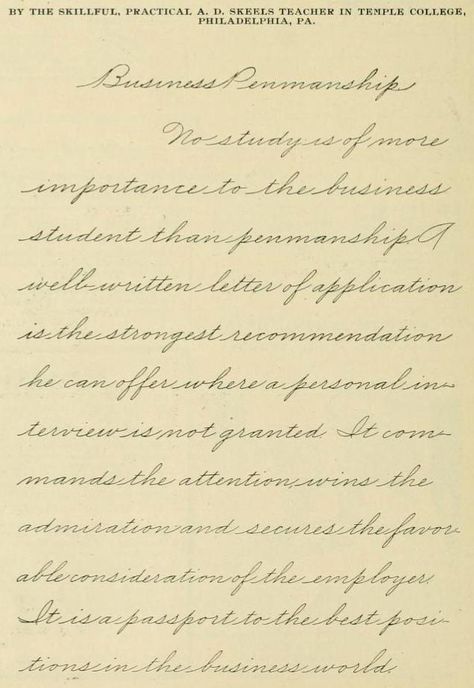 BY THE SKILLFUL, PRACTICAL A. D. SKEELS TEACHER IN TEMPLE COLLEGE,
PHILADELPHIA, PA.
Business Penmanship
No study is of more
importance to the business
student than penmanship. A
well-written letter of application
is the strongest recommendation
he can offer where a personal in-
terview is not granted. It com-
mands the attention, wins the
admiration and secures the favor-
able consideration of the employer.
It is a passport to the best posi-
tions in the business world.